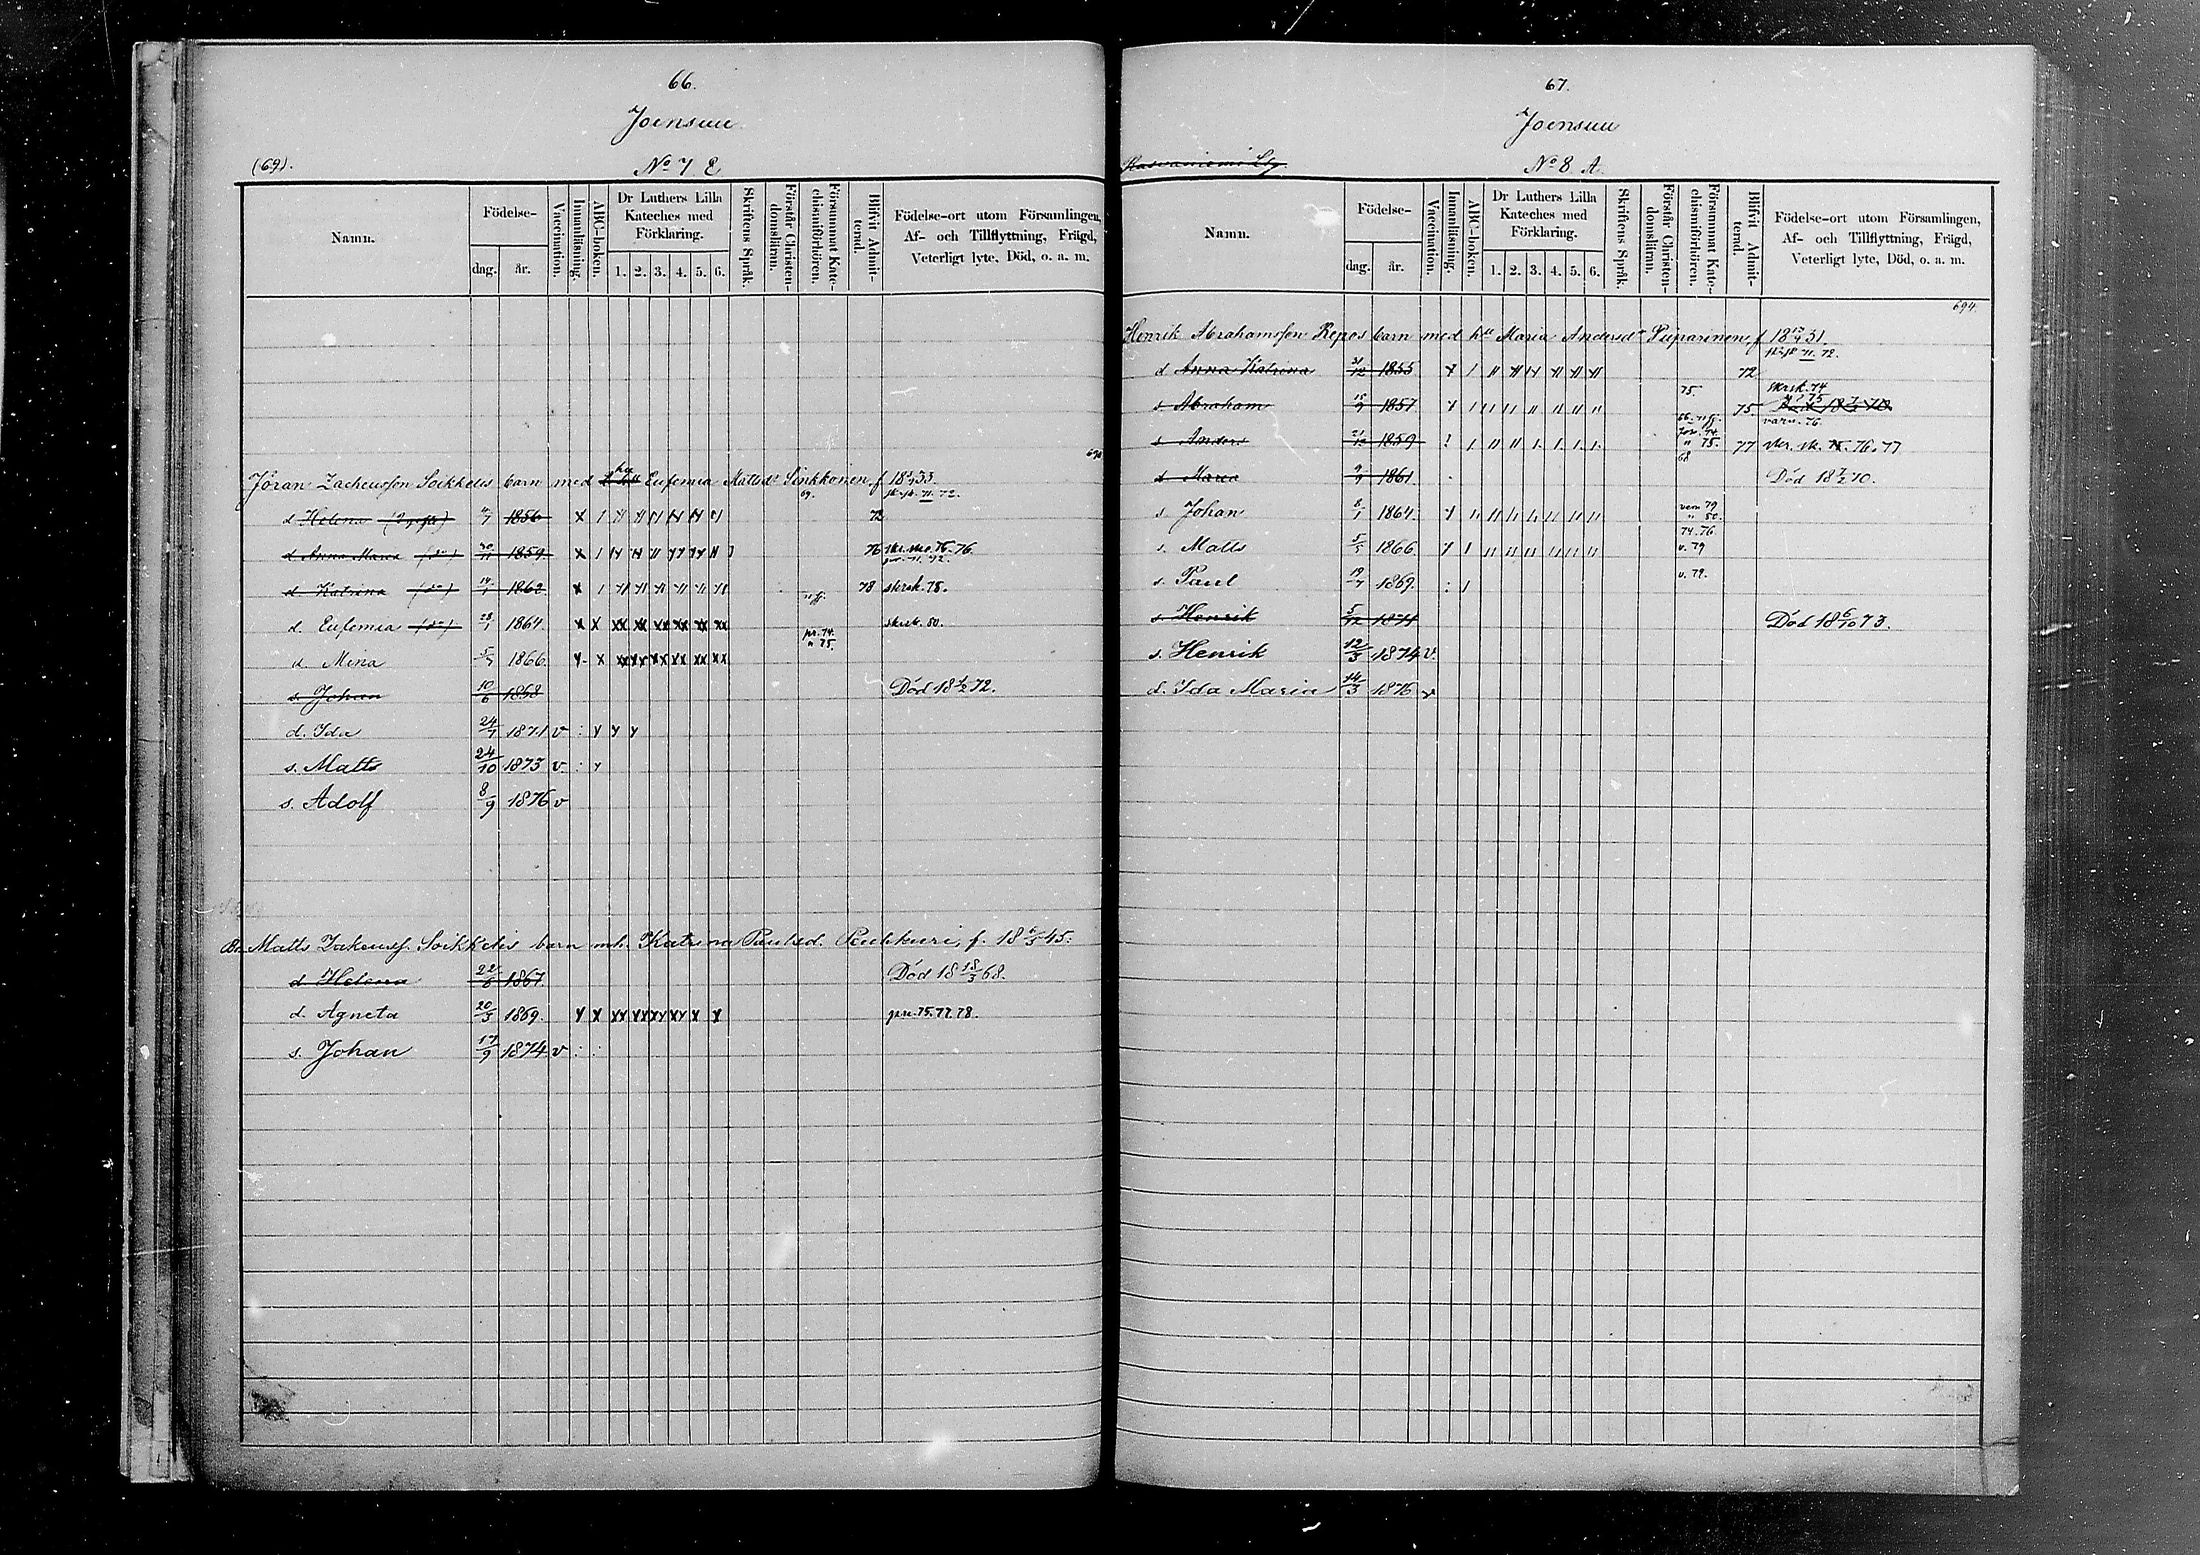 66.
Joensuu
(69).
No 7 E
Namn.
Födelse-
dag.
år.
Vaccination.
Innanläsning.
ABC-boken.
Dr Luthers Lilla
Kateches med
Förklaring.
1. 2. 3. 4. 5. 6.
Skriftens Språk.
Förstår Christen-
domsläran.
Försummat Kate-
chismiförhören.
Blifvit Admit-
terad.
Födelse-ort utom Församlingen,
Af- och Tillflyttning, Frägd,
Veterligt lyte, Död, o. a. m.
Jöran Zacheusson Soikkelis barn med Eufemia Mattsdr Sinkkonen, f
69.
d Helena 1856 72
d Anna Maria 1859 76
d. Katrina 14/1 1862 78 skrsk. 78.
d. Eufemia 28/1 1864 skrsk. 80.
pr. 74.
" 75.
d. Mina 1866.
s. Johan 10/6 1868 Död 72.
d. Ida 24/7 1871 v
s. Matts 24/10 1873 v.
s. Adolf 8/9 1876 v
Matts Zakeusf. Soikkelis barn mh. Katrina Paulsd. f. 18 45.
d Helena 22/6 1867 Död 18 18/3 68.
d. Agneta 20/3 1869. pr. 75. 77. 78.
s. Johan 17/9 1874 v
67.
Joensuu
No 8 A.
Namn.
Födelse-
dag.
år.
Vaccination.
Innanläsning.
ABC-boken.
Dr Luthers Lilla
Kateches med
Förklaring.
1. 2. 3. 4. 5. 6.
Skriftens Språk.
Förstår Christen-
domsläran.
Försummat Kate-
chismiförhören.
Blifvit Admit-
terad.
Födelse-ort utom Församlingen,
Af- och Tillflyttning, Frägd,
Veterligt lyte, Död, o. a. m.
694.
Henrik Abrahamsson Repos barn med hu Maria Andersdr f 31.
71. 72.
d Anna Katrina 31/12 1855 72
75. skrsk. 74
s. Abraham 15/9 1857 75.
varn. 76.
s Anders 21/12 1859 " 75. 77 76. 77
68
d. Maria 9/9 1861. Död 70.
s. Johan 8/1 1864. 79
" 80.
s. Matts 5/5 1866. 74. 76.
v. 79
s. Paul 19/7 1869. v. 79.
s Henrik 5/12 1871 Död 18 6/10 73.
s. Henrik 12/3 1874 v.
d. Ida Maria 14/3 1876 v